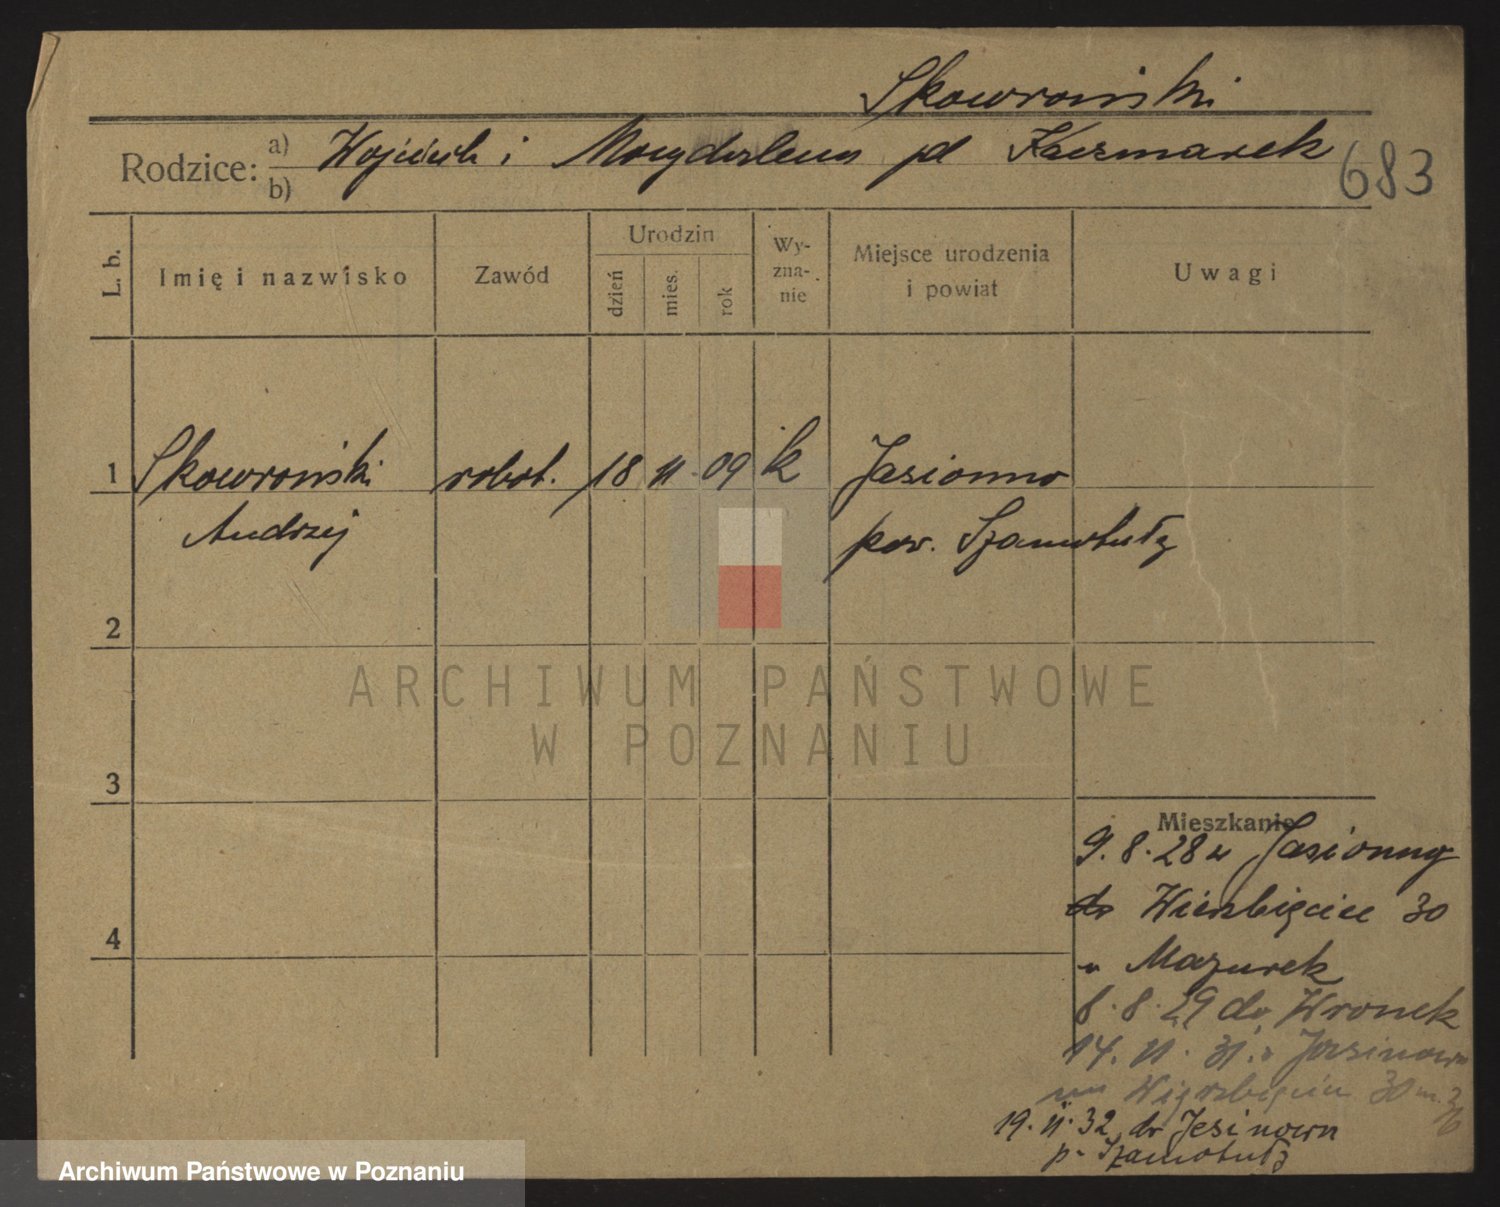 Skowroński
Rodzice: a) Wojciech i Magdalena zd Kaczmarek
b)
683
L. b.
Imię i nazwisko
Zawód
Urodzin
dzień
mies.
rok
Wy-
zna-
nie
Miejsce urodzenia
i powiat
Uwagi
1 Skowroński robot. 18 11 09 k Jasionno
Andrzej pow. Szamotuły
2
3
4
ARCHIWUM PAŃSTWOWE
W POZNANIU
Mieszkanie
9.8.28 z Jasionny
do Wierzbięcice 30
u Mazurek
8.8.29 do Wronek
14. 11. 31. z Jasinowa
na Wierzbięcice 30 m.
19. 11. 32 do Jesinowa
p. Szamotuły
Archiwum Państwowe w Poznaniu